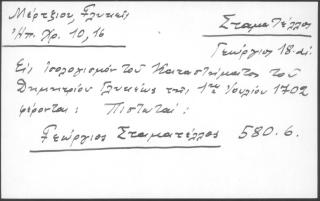 Μέρτζιου, Γλυκεῖς
Ἠπ. Χρ. 10, 16
Σταματέλλος
Γεώργιος 18-αι.
Εἰς ἰσολογισμόν τοῦ Καταστήματος τοῦ
Δημητρίου Γλυκέως τῆς 1ης Ἰουλίου 1702
φέρονται: Πισταταί:
Γεώργιος Σταματέλλος 580.6.